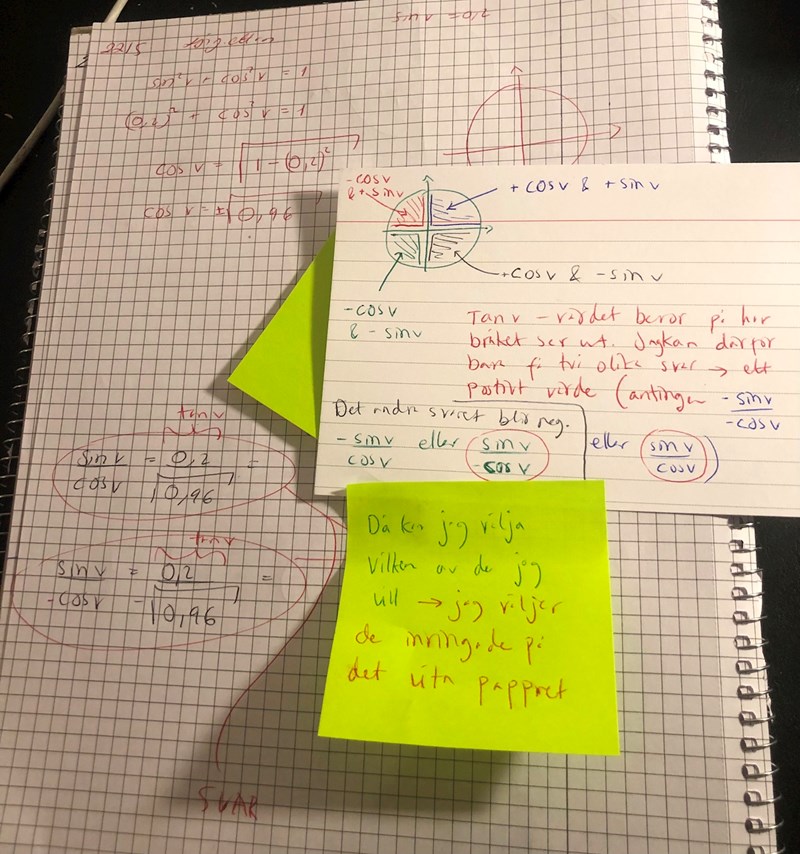 sin v = 0,2
2215
sin²v + cos²v = 1
(0,2)² + cos²v = 1
cos v = √1-(0,2)²
cos v = ±√0,96
-cosv
& +sinv
+cosv & +sinv
+cosv & -sinv
-cosv
& -sinv
Tanv - värdet beror på hur
bråket ser ut. Jag kan därför
bara få två olika svar → ett
positivt värde (antingen -sinv/-cosv
eller sinv/cosv)
Det andra svaret blir neg.
-sinv/cosv eller sinv/-cosv
tanv
sinv/cosv = 0,2/√0,96 =
tanv
sinv/-cosv = 0,2/-√0,96 =
Då kan jag välja
vilken av de jag
vill → jag väljer
de inringade på
det vita pappret
SVAR